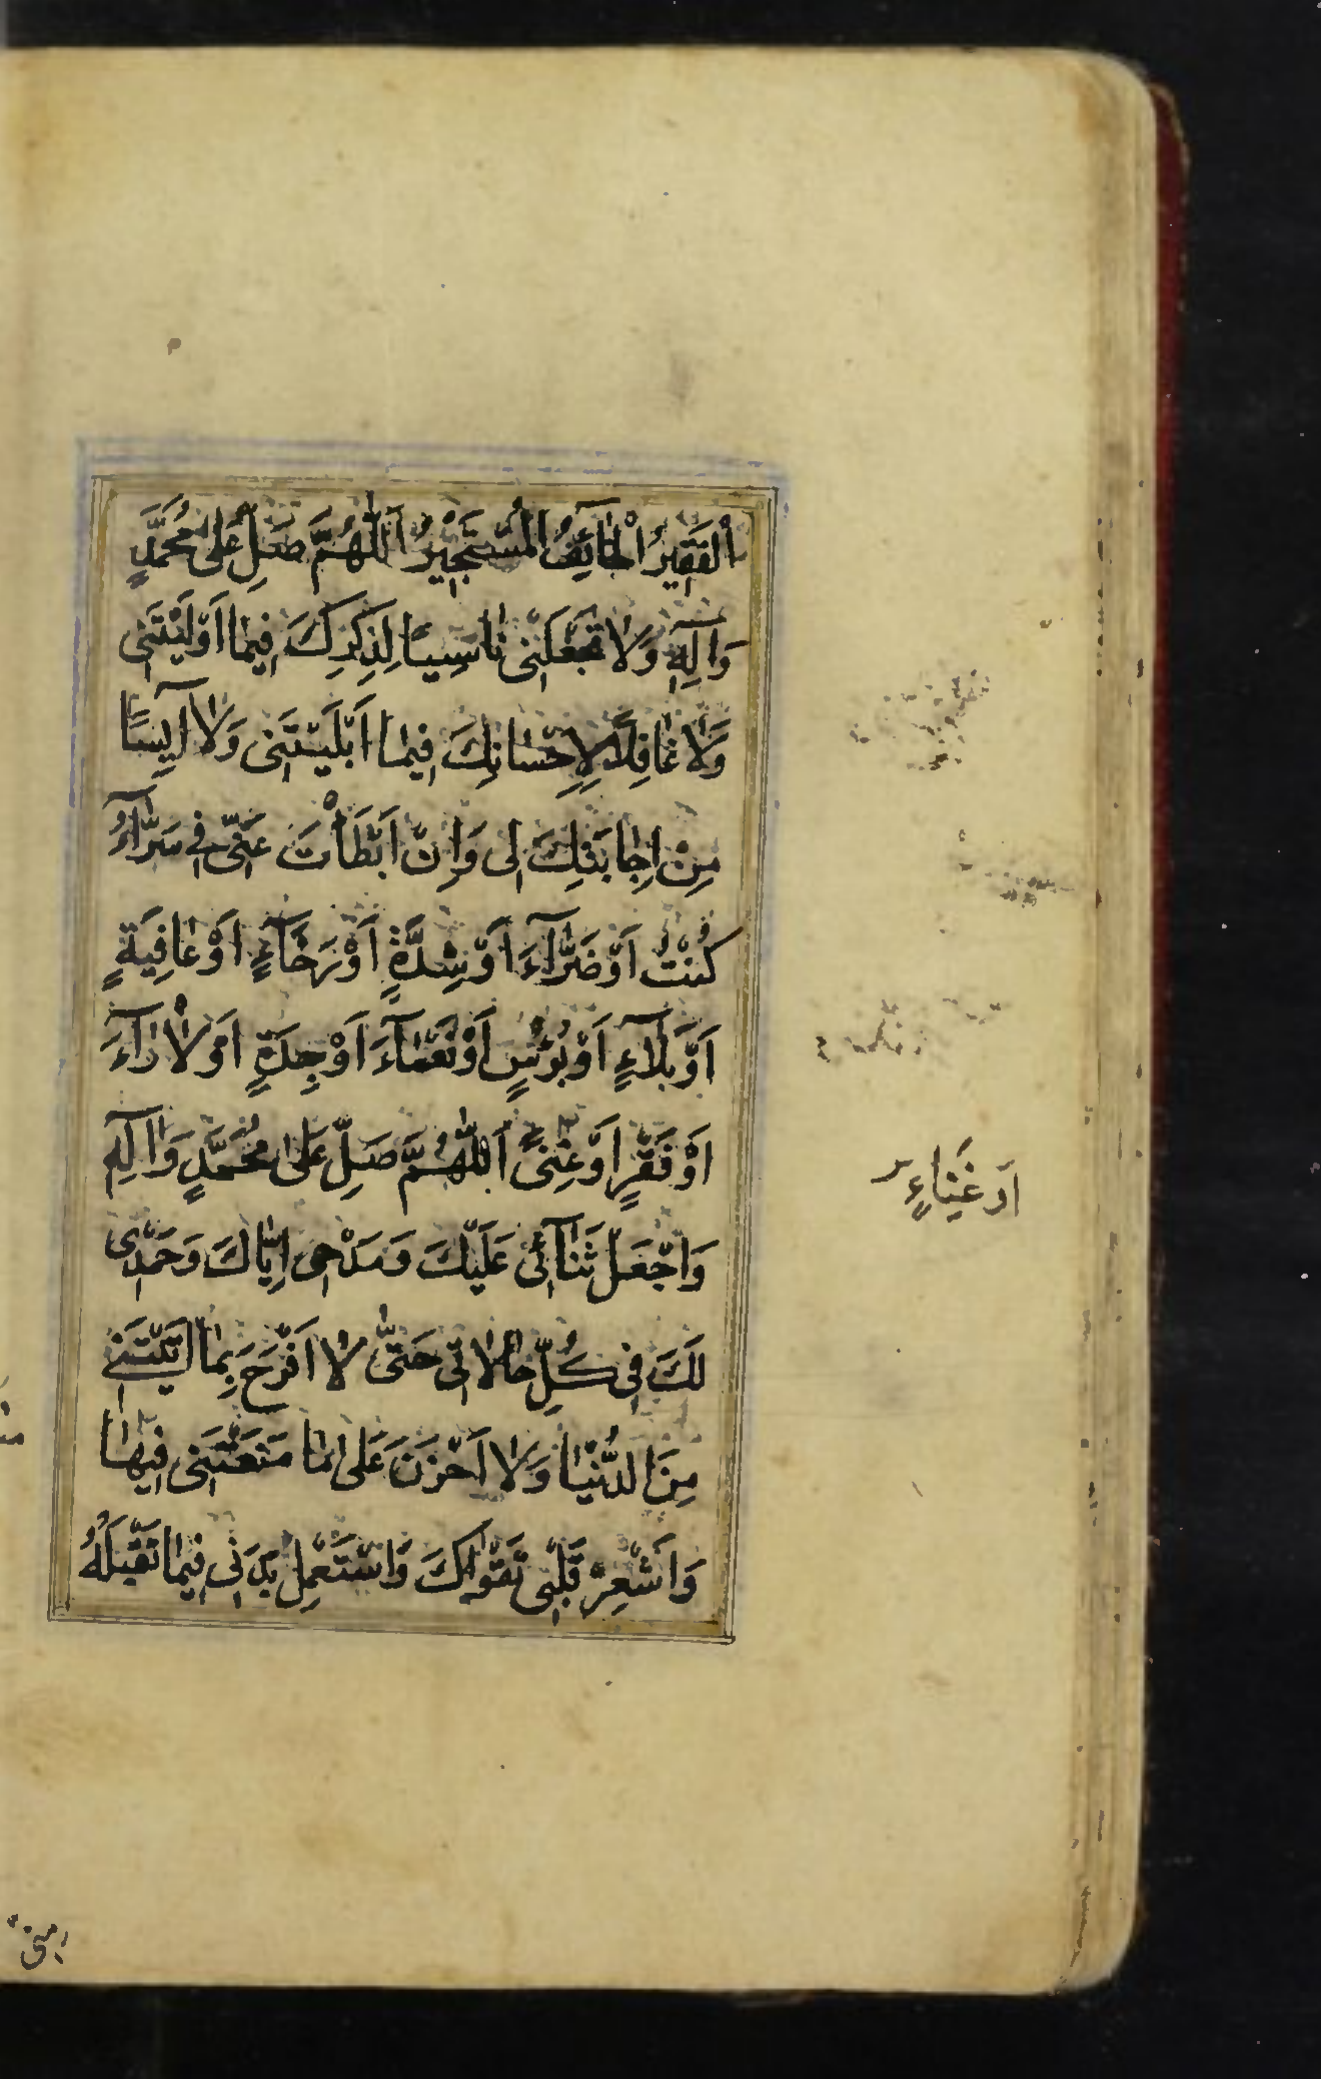 أَلْفَقِيرُ الْخَآئِفُ الْمُسْتَجِيْرُ اَللّٰهُمَّ صَلِّ عَلٰى مُحَمَّدٍ
وَاٰلِهِ وَلَا تَجْعَلْنِى نَاسِيًا لِذِكْرِكَ فِيمَا اَوْلَيْتَنِى
وَلَا غَافِلًا لِاِحْسَانِكَ فِيمَا اَبْلَيْتَنِى وَلَا اٰيِسًا
مِنْ اِجَابَتِكَ لِى وَاِنْ اَبْطَأْتَ عَنِّى فِى سَرَّآءَ
كُنْتُ اَوْ ضَرَّآءَ اَوْ شِدَّةٍ اَوْ رَخَآءٍ اَوْ عَافِيَةٍ
اَوْ بَلَآءٍ اَوْ بُؤْسٍ اَوْ نَعْمَآءَ اَوْ جِدَةٍ اَوْ لَأْوَآءَ
اَوْ فَقْرٍ اَوْ غِنىً اَللّٰهُمَّ صَلِّ عَلٰى مُحَمَّدٍ وَاٰلِهِ
وَاجْعَلْ ثَنَآئِى عَلَيْكَ وَمَدْحِى اِيَّاكَ وَحَمْدِى
لَكَ فِى كُلِّ حَالَاتِى حَتّٰى لَا اَفْرَحَ بِمَا اٰتَيْتَنِى
مِنَ الدُّنْيَا وَلَا اَحْزَنَ عَلٰى مَا مَنَعْتَنِى فِيهَا
وَاَشْعِرْ قَلْبِى تَقْوٰاكَ وَاسْتَعْمِلْ بَدَنِى فِيمَا تَقْبَلُهُ
اَوْ غَنَاءٍ